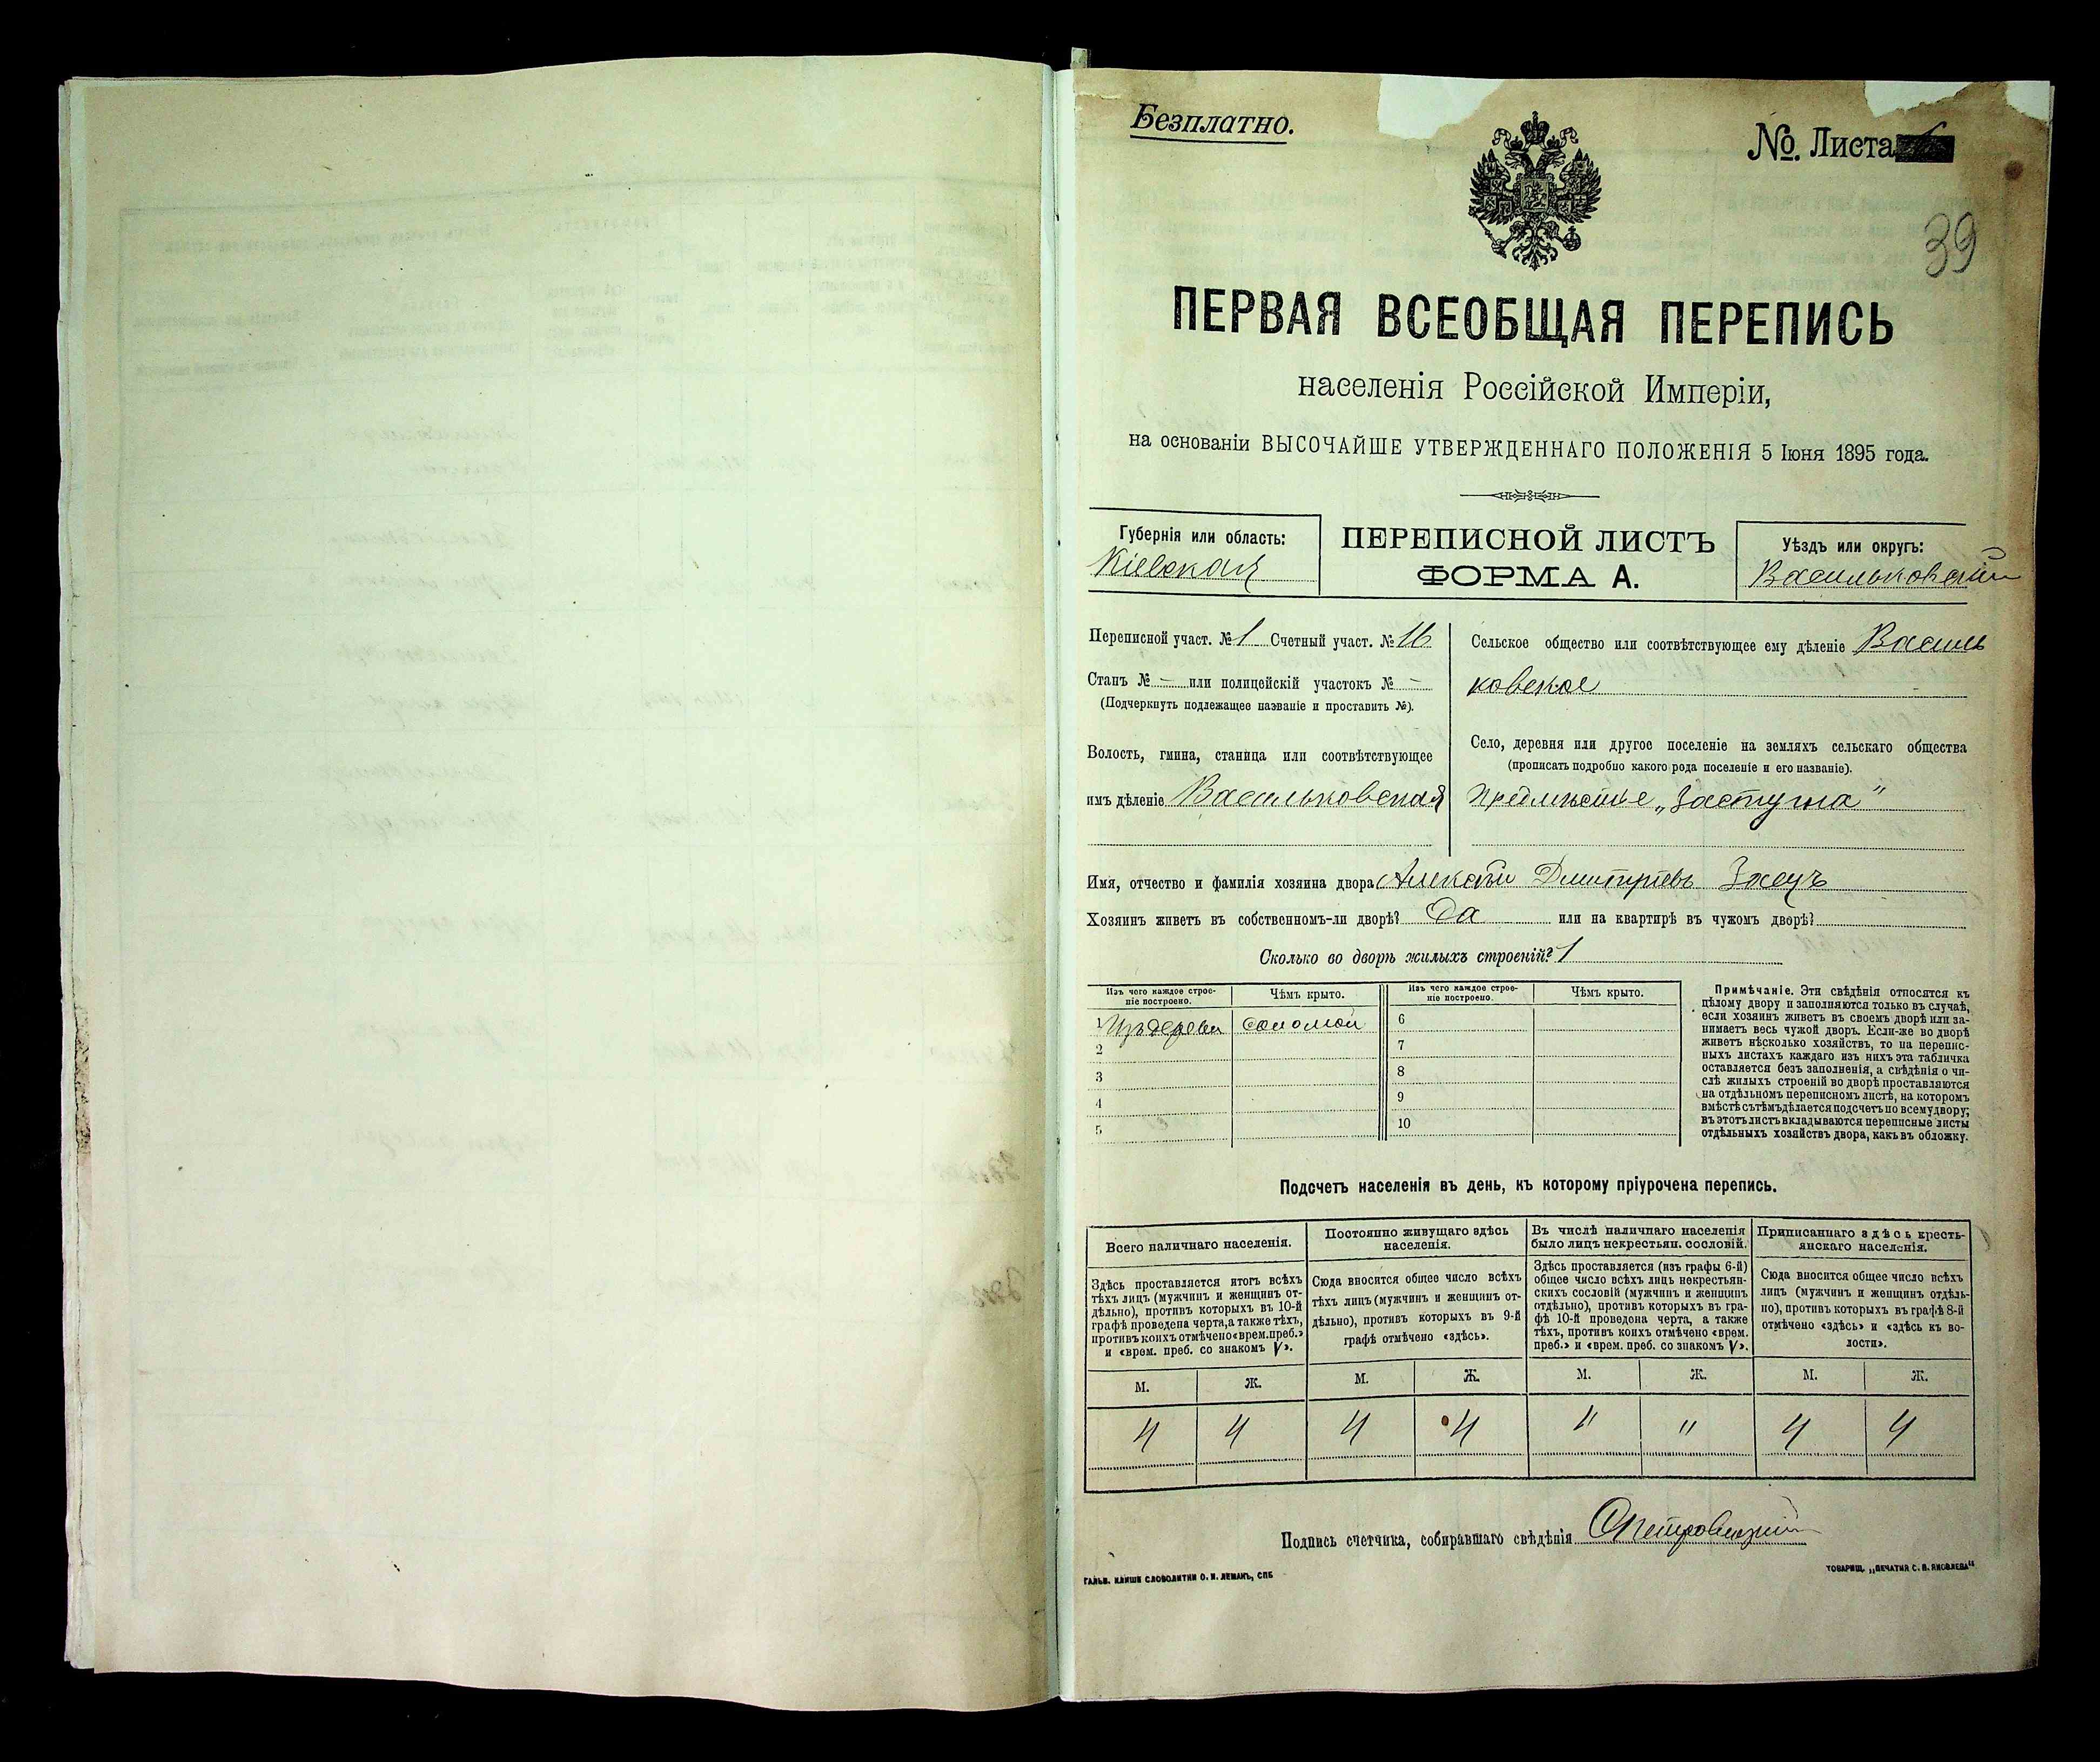 Безплатно.
№ Листа
39
ПЕРВАЯ ВСЕОБЩАЯ ПЕРЕПИСЬ
населенія Россійской Имперіи,
на основаніи ВЫСОЧАЙШЕ УТВЕРЖДЕННАГО ПОЛОЖЕНІЯ 5 Іюня 1895 года.
Губернія или область:
Кіевская
ПЕРЕПИСНОЙ ЛИСТЪ
ФОРМА А.
Уѣздъ или округъ:
Васильковскій
Переписной участ. № 1 Счетный участ. № 16
Станъ № — или полицейскій участокъ № —
(Подчеркнуть подлежащее названіе и проставить №).
Волость, гмина, станица или соотвѣтствующее
имъ дѣленіе Васильковская
Сельское общество или соотвѣтствующее ему дѣленіе Василь
ковское
Село, деревня или другое поселеніе на земляхъ сельскаго общества
(прописать подробно какого рода поселеніе и его названіе).
Предмѣстье „Застугна"
Имя, отчество и фамилія хозяина двора Алексѣй Дмитріевъ Заецъ
Хозяинъ живетъ въ собственномъ-ли дворѣ? Да или на квартирѣ въ чужомъ дворѣ?
Сколько во дворѣ жилыхъ строеній? 1
Изъ чего каждое строе-
ніе построено.
Чѣмъ крыто.
Изъ чего каждое строе-
ніе построено.
Чѣмъ крыто.
1 Изъ дерева соломой
2
3
4
5
6
7
8
9
10
Примѣчаніе. Эти свѣдѣнія относятся къ
цѣлому двору и заполняются только въ случаѣ,
если хозяинъ живетъ въ своемъ дворѣ или за-
нимаетъ весь чужой дворъ. Если-же во дворѣ
живетъ нѣсколько хозяйствъ, то на перепис-
ныхъ листахъ каждаго изъ нихъ эта табличка
оставляется безъ заполненія, а свѣдѣнія о чи-
слѣ жилыхъ строеній во дворѣ проставляются
на отдѣльномъ переписномъ листѣ, на которомъ
вмѣстѣ съ тѣмъ дѣлается подсчетъ по всему двору;
въ этотъ листъ вкладываются переписные листы
отдѣльныхъ хозяйствъ двора, какъ въ обложку.
Подсчетъ населенія въ день, къ которому пріурочена перепись.
Всего наличнаго населенія.
Здѣсь проставляется итогъ всѣхъ
тѣхъ лицъ (мужчинъ и женщинъ от-
дѣльно), противъ которыхъ въ 10-й
графѣ проведена черта, а также тѣхъ,
противъ коихъ отмѣчено «врем. преб.»
и «врем. преб. со знакомъ V».
Постоянно живущаго здѣсь
населенія.
Сюда вносится общее число всѣхъ
тѣхъ лицъ (мужчинъ и женщинъ от-
дѣльно), противъ которыхъ въ 9-й
графѣ отмѣчено «здѣсь».
Въ числѣ наличнаго населенія
было лицъ некрестьян. сословій.
Здѣсь проставляется (изъ графы 6-й)
общее число всѣхъ лицъ некрестьян-
скихъ сословій (мужчинъ и женщинъ
отдѣльно), противъ которыхъ въ гра-
фѣ 10-й проведена черта, а также
тѣхъ, противъ коихъ отмѣчено «врем.
преб.» и «врем. преб. со знакомъ V».
Приписаннаго здѣсь кресть-
янскаго населенія.
Сюда вносится общее число всѣхъ
лицъ (мужчинъ и женщинъ отдѣль-
но), противъ которыхъ въ графѣ 8-й
отмѣчено «здѣсь» и «здѣсь къ во-
лости».
М. Ж. М. Ж. М. Ж. М. Ж.
4 4 4 4 " " 4 4
Подпись счетчика, собиравшаго свѣдѣнія
ГАЛЬВ. КЛИШЕ СЛОВОЛИТНИ О. И. ЛЕМАНЪ, СПБ
ТОВАРИЩ. „ПЕЧАТНЯ С. П. ЯКОВЛЕВА"